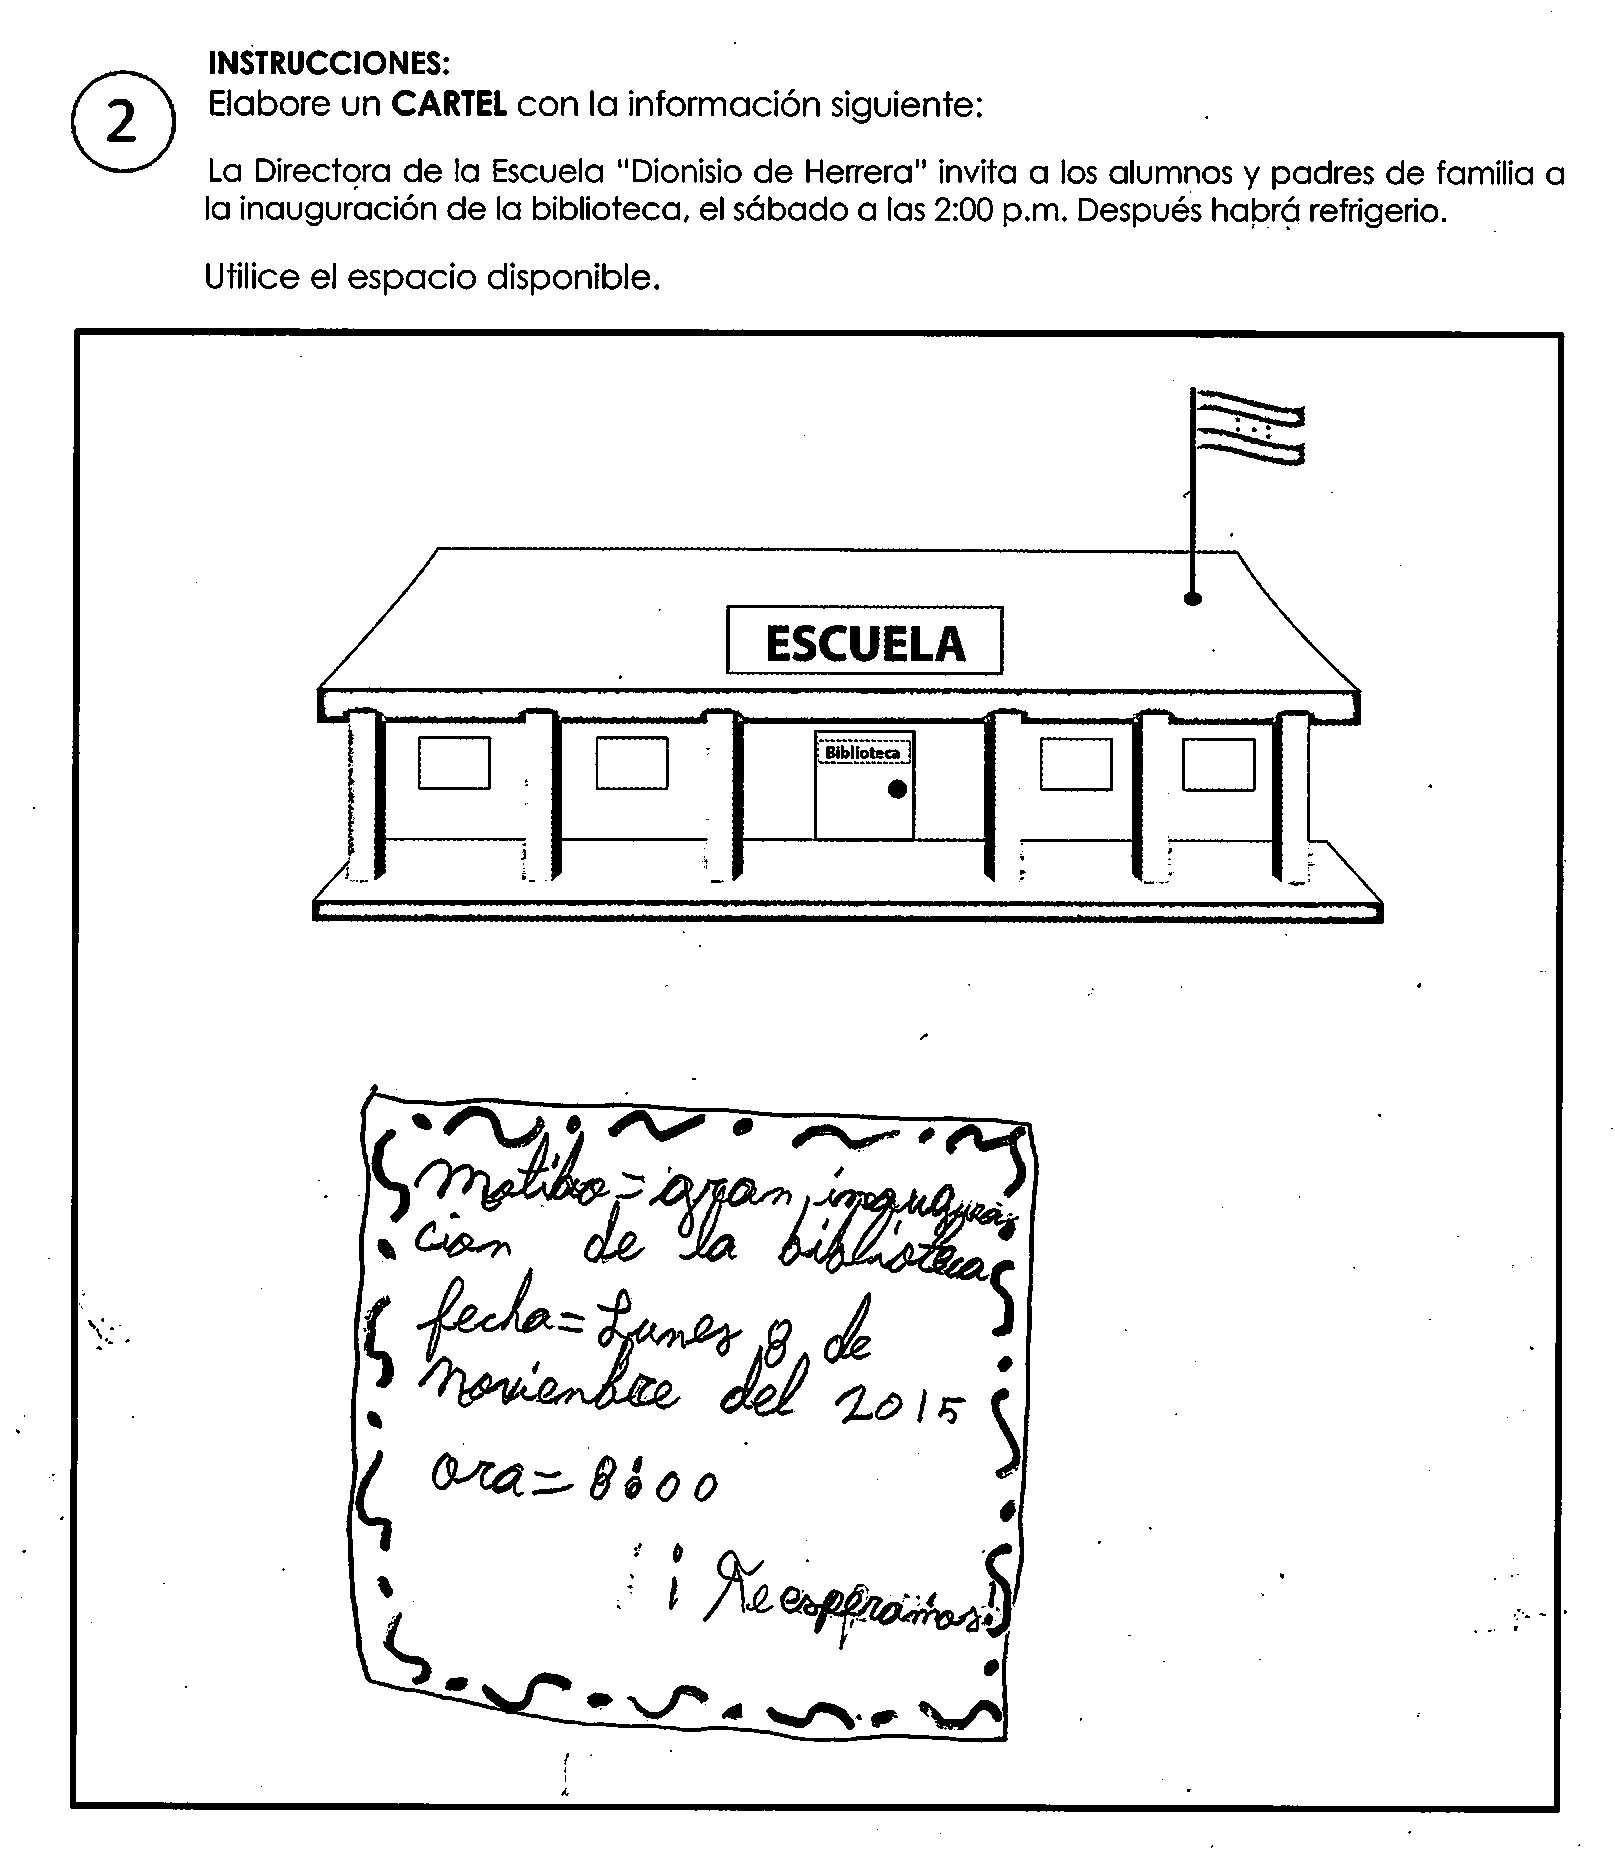 INSTRUCCIONES:
2
Elabore un CARTEL con la información siguiente:
La Directora de la Escuela "Dionisio de Herrera" invita a los alumnos y padres de familia a
la inauguración de la biblioteca, el sábado a las 2:00 p.m. Después habrá refrigerio.
Utilice el espacio disponible.
ESCUELA
Biblioteca
motibo= gran inagugura
cion de la biblioteca
fecha= Lunes 8 de
noviembre del 2015
ora= 8:00
¡Te esperamos!